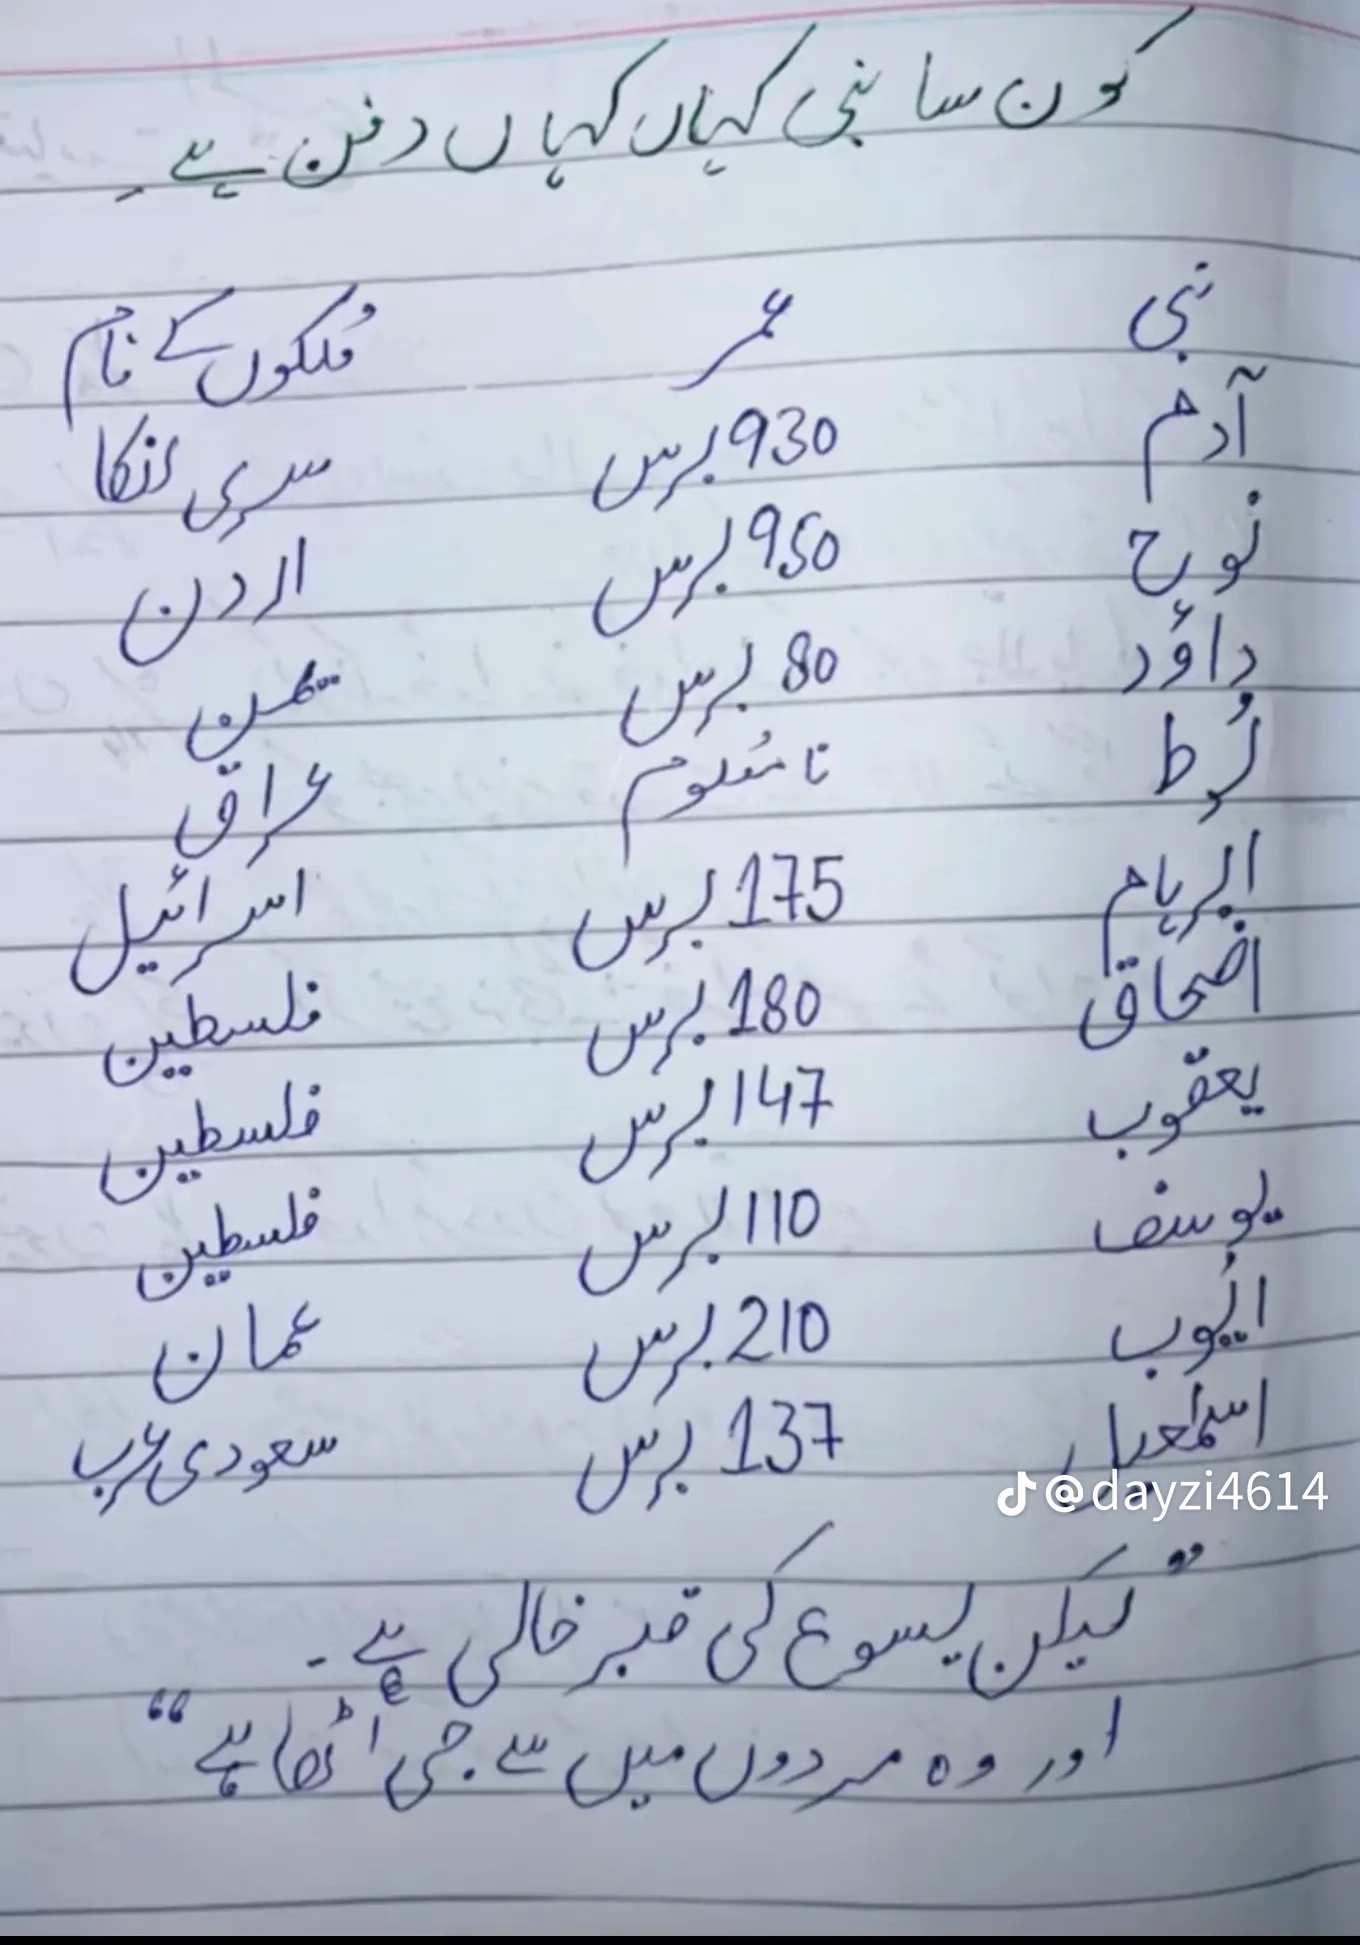 کون سا نبی کہاں کہاں دفن ہے۔
نبی عمر مُلکوں کے نام
آدم 930 برس سری لنکا
نوح 950 برس اردن
داؤد 80 برس یمن
لُوط نا معُلوم عراق
ابرہام 175 برس اسرائیل
اضحاق 180 برس فلسطین
یعقوب 147 برس فلسطین
یوسف 110 برس فلسطین
ایُوب 210 برس عمان
اسمٰعیل 137 برس سعودی عرب
@dayzi4614
”لیکن یسوع کی قبر خالی ہے۔
اور وہ مردوں میں سے جی اُٹھا ہے“